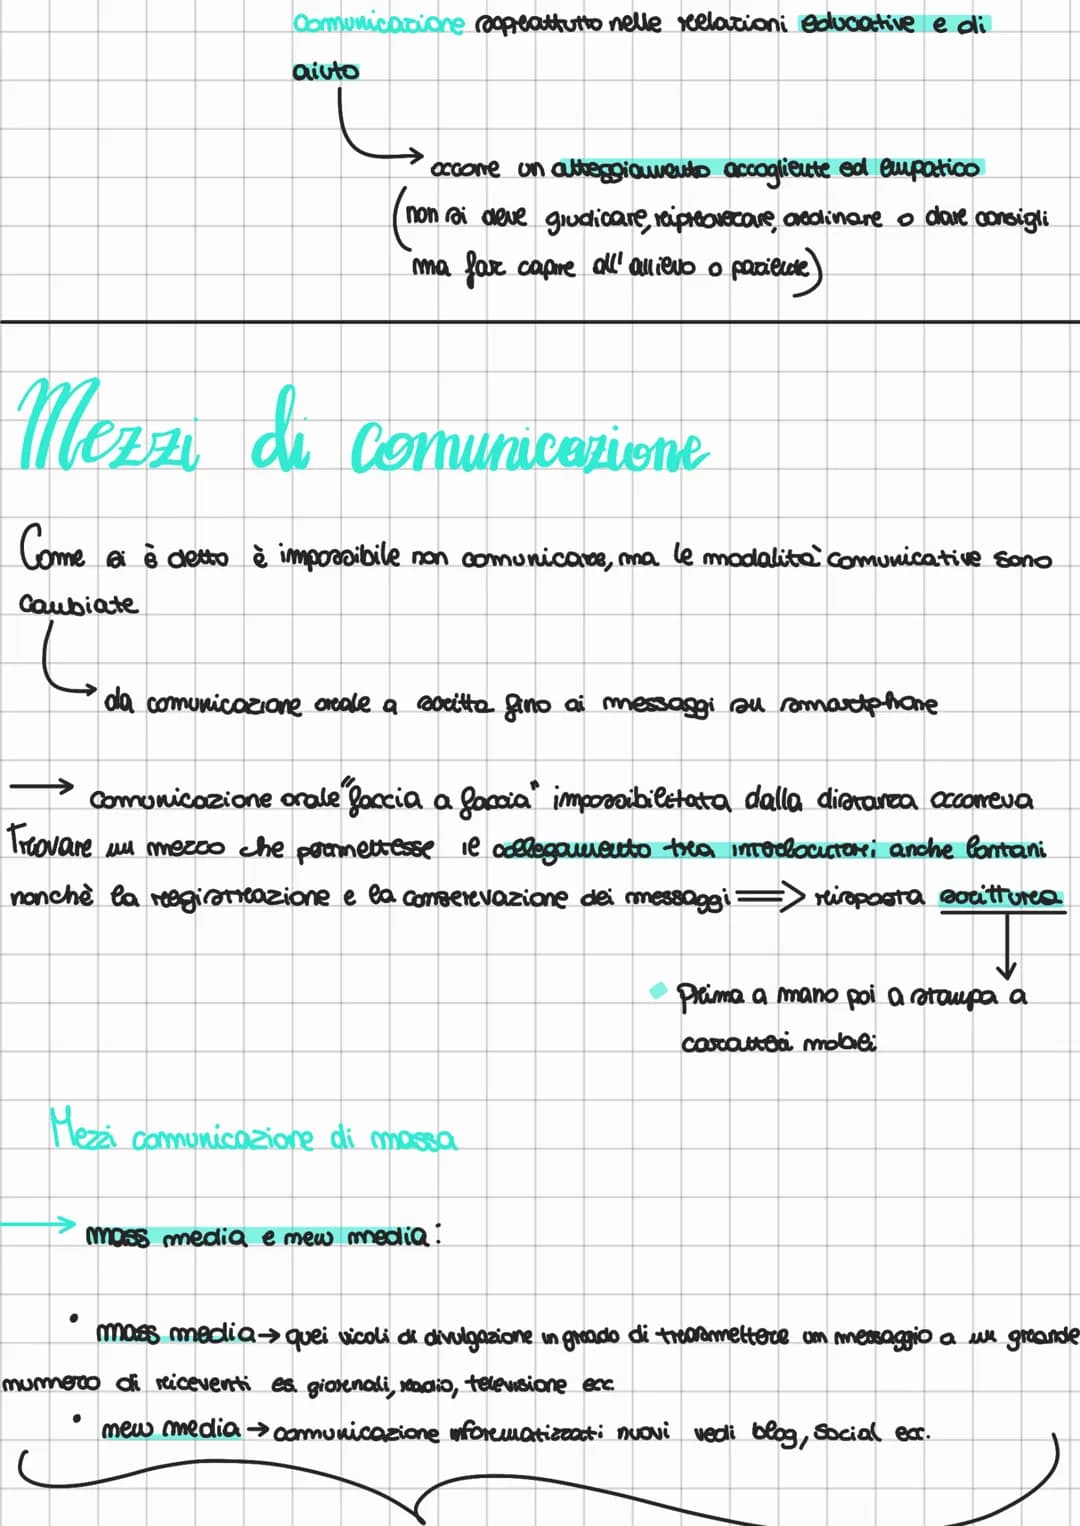 comunicazione soprattutto nelle relazioni educative e di
aiuto
occorre un atteggiamento accogliente ed empatico
(non si deve giudicare, rimproverare, ordinare o dare consigli
ma far capire all'allievo o paziente)
Mezzi di comunicazione
Come si è detto è impossibile non comunicare, ma le modalità comunicative sono
cambiate
da comunicazione orale a scritta fino ai messaggi su smartphone
→ comunicazione orale "faccia a faccia" impossibilitata dalla distanza occorreva
trovare un mezzo che permettesse il collegamento tra interlocutori anche lontani
nonchè la registrazione e la conservazione dei messaggi ⇒ risposta scrittura
Prima a mano poi a stampa a
caratteri mobili
Mezzi comunicazione di massa
→ mass media e mew media:
• mass media → quei vicoli di divulgazione in grado di trasmettere un messaggio a un grande
numnero di riceventi es. giornali, radio, televisione ecc
• mew media → comunicazione informatizzati nuovi vedi blog, social ecc.